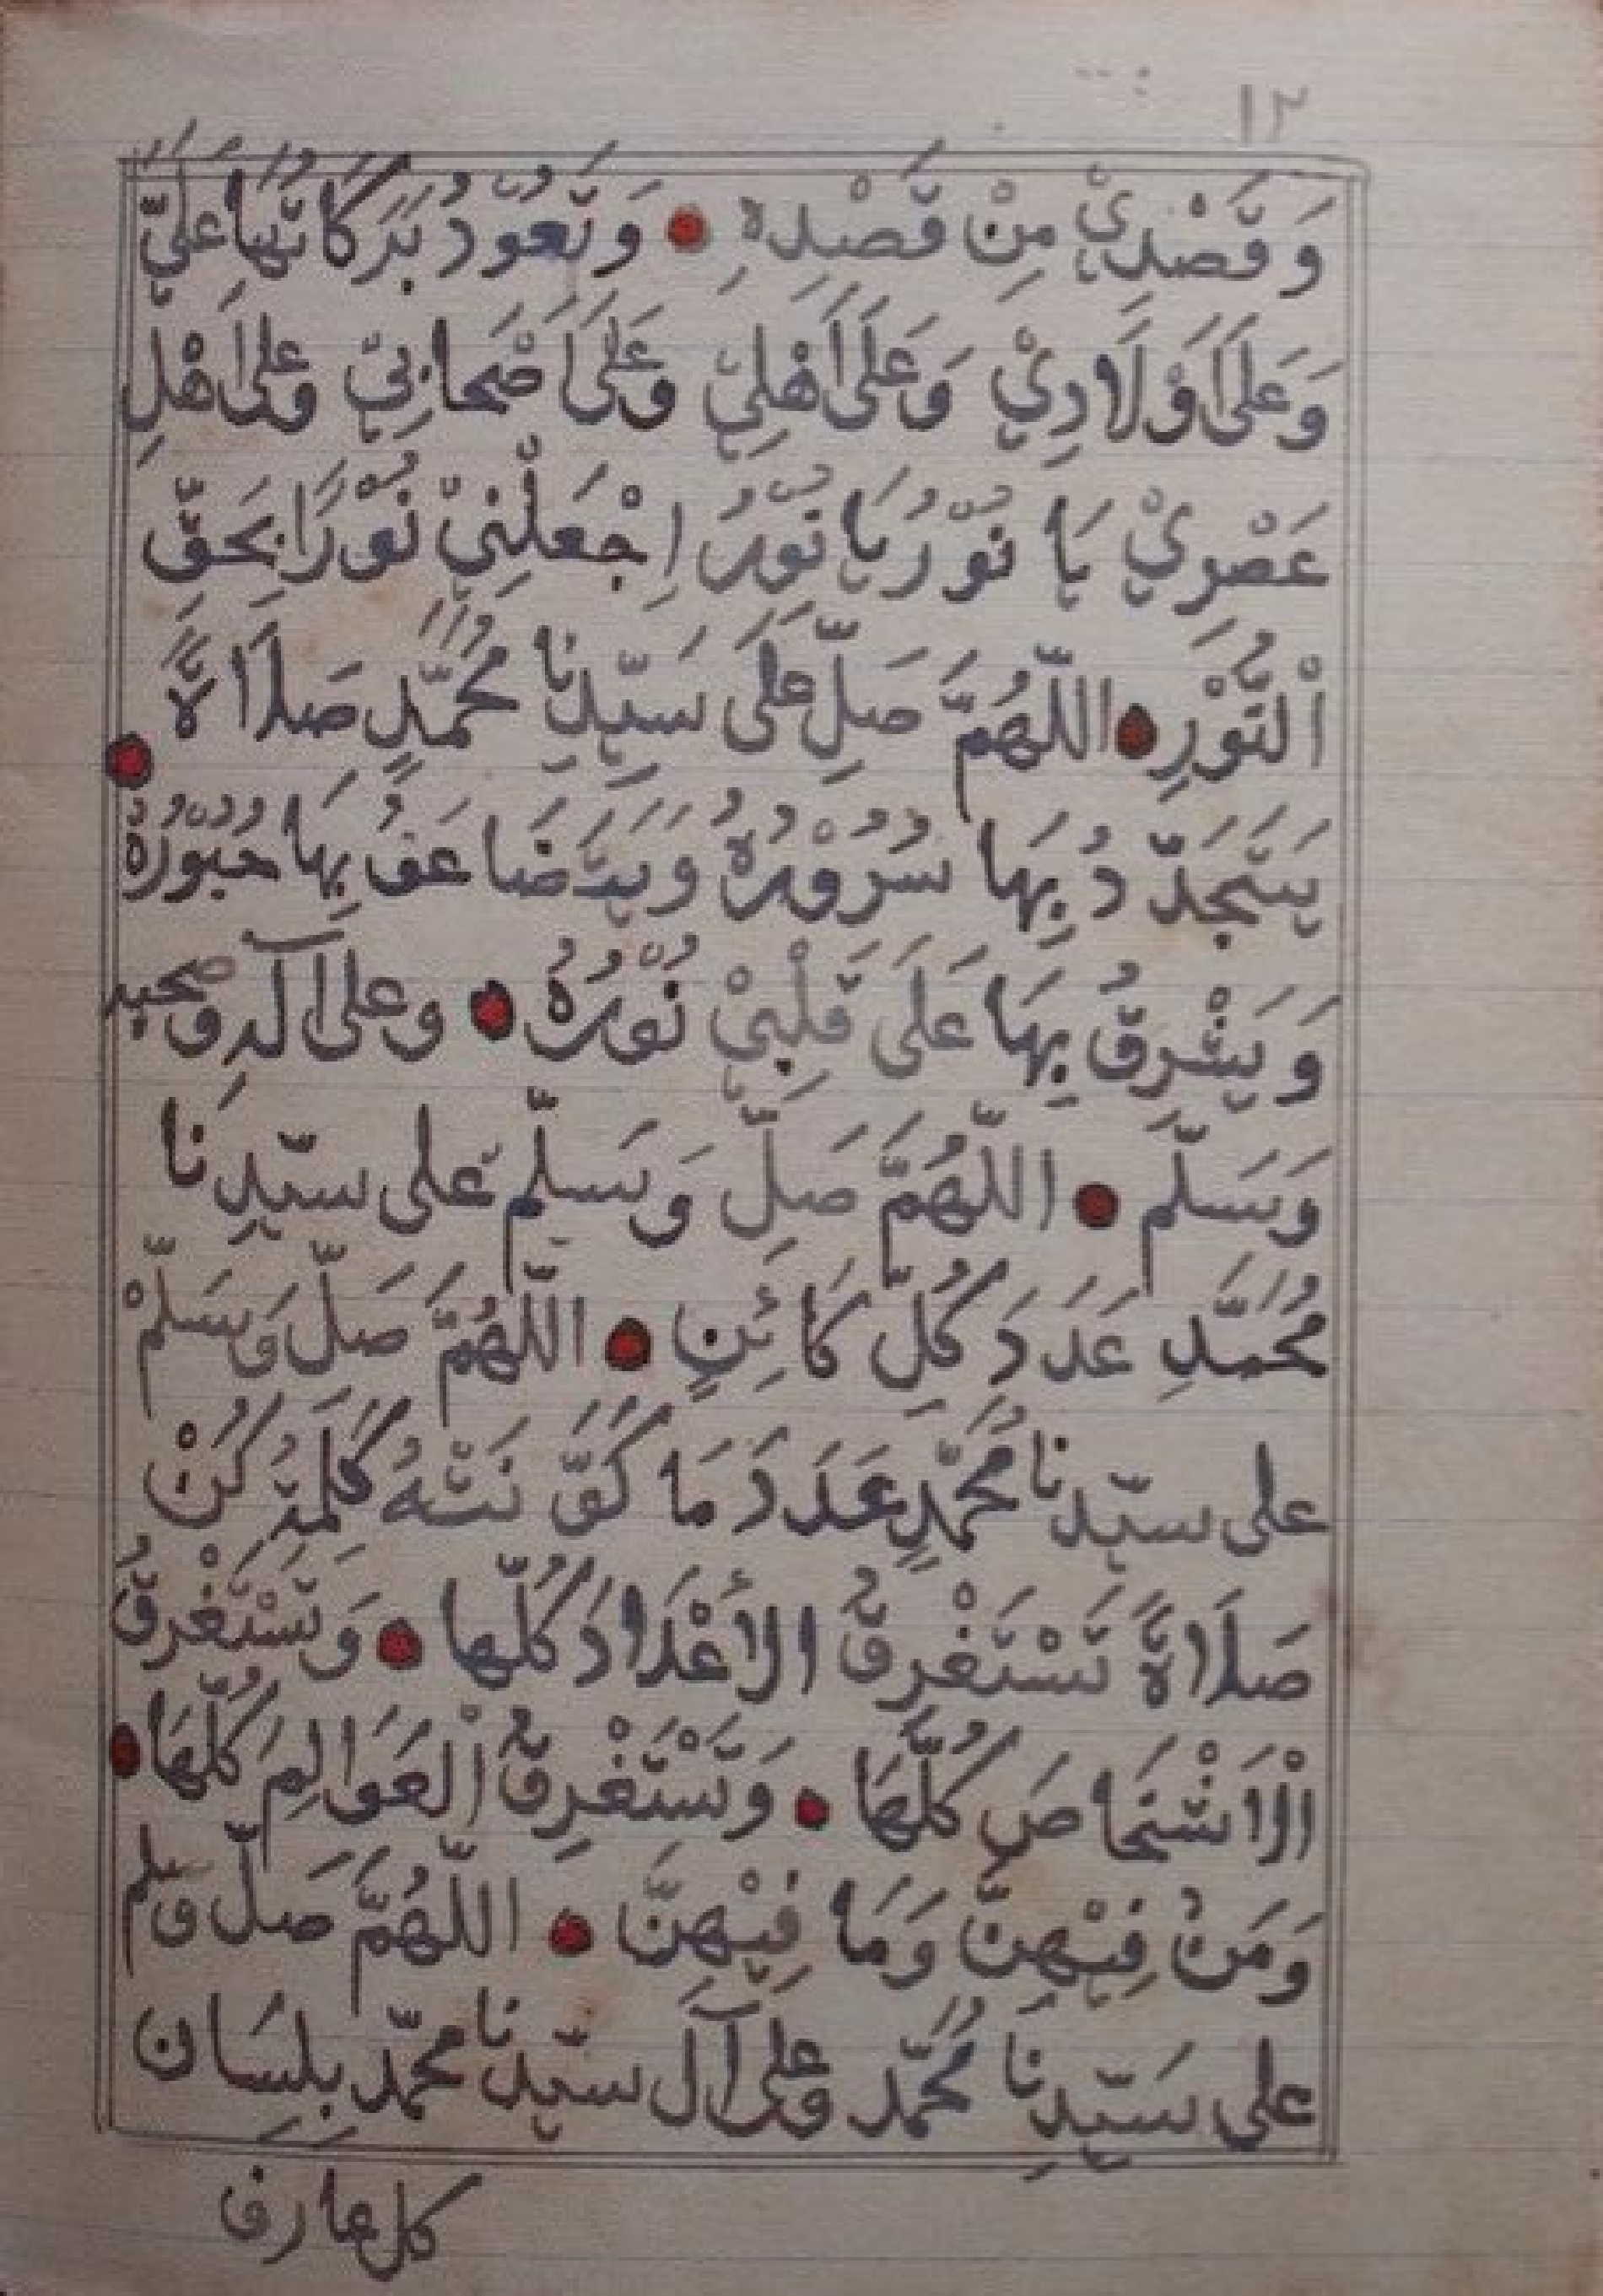 ١٢
وَقَصْدِيْ مِنْ قَصْدِهِ • وَتَعُوْدُ بَرَكَاتُهَا عَلَيَّ
وَعَلَى اَوْلَادِيْ وَعَلَى اَهْلِيْ وَعَلَى اَصْحَابِيْ وَعلى اَهْلِ
عَصْرِيْ يَا نُوْرُ يَا نُوْرُ اِجْعَلْنِيْ نُوْرًا بِحَقِّ
اْلنُّوْرِ • اللّهُمَّ صَلِّ عَلَى سَيِّدِنَا مُحَمَّدٍ صَلَاةً •
يَتَجَدَّدُ بِهَا سُرُوْرُهُ وَيَتَضَاعَفُ بِهَا حُبُوْرُهُ
وَيَشْرِقُ بِهَا عَلَى قَلْبِيْ نُوْرُهُ • وعلى آلِهِ وصحبه
وَسَلِّمْ • اللّهُمَّ صَلِّ وَسَلِّمْ على سيّدِنَا
مُحَمَّدٍ عَدَدَ كُلِّ كَائِنٍ • اللّهُمَّ صَلِّ وَسَلِّمْ
على سيّدنا مُحَمَّدٍ عَدَدَ مَا كَوَّنَتْهُ كَلِمَةُ كُنْ
صَلَاةً تَسْتَغْرِقُ الأَعْدَادَ كُلَّها • وَتَسْتَغْرِقُ
اْلاَشْخَاصَ كُلَّهَا • وَتَسْتَغْرِقُ اْلعَوَالِمَ كُلَّهَا •
وَمَنْ فِيْهِنَّ وَمَا فِيْهِنَّ • اللّهُمَّ صَلِّ وسلم
على سَيِّدِنَا مُحَمَّد وعلى آل سيّدنا محمّد بِلِسَان
كل عارف